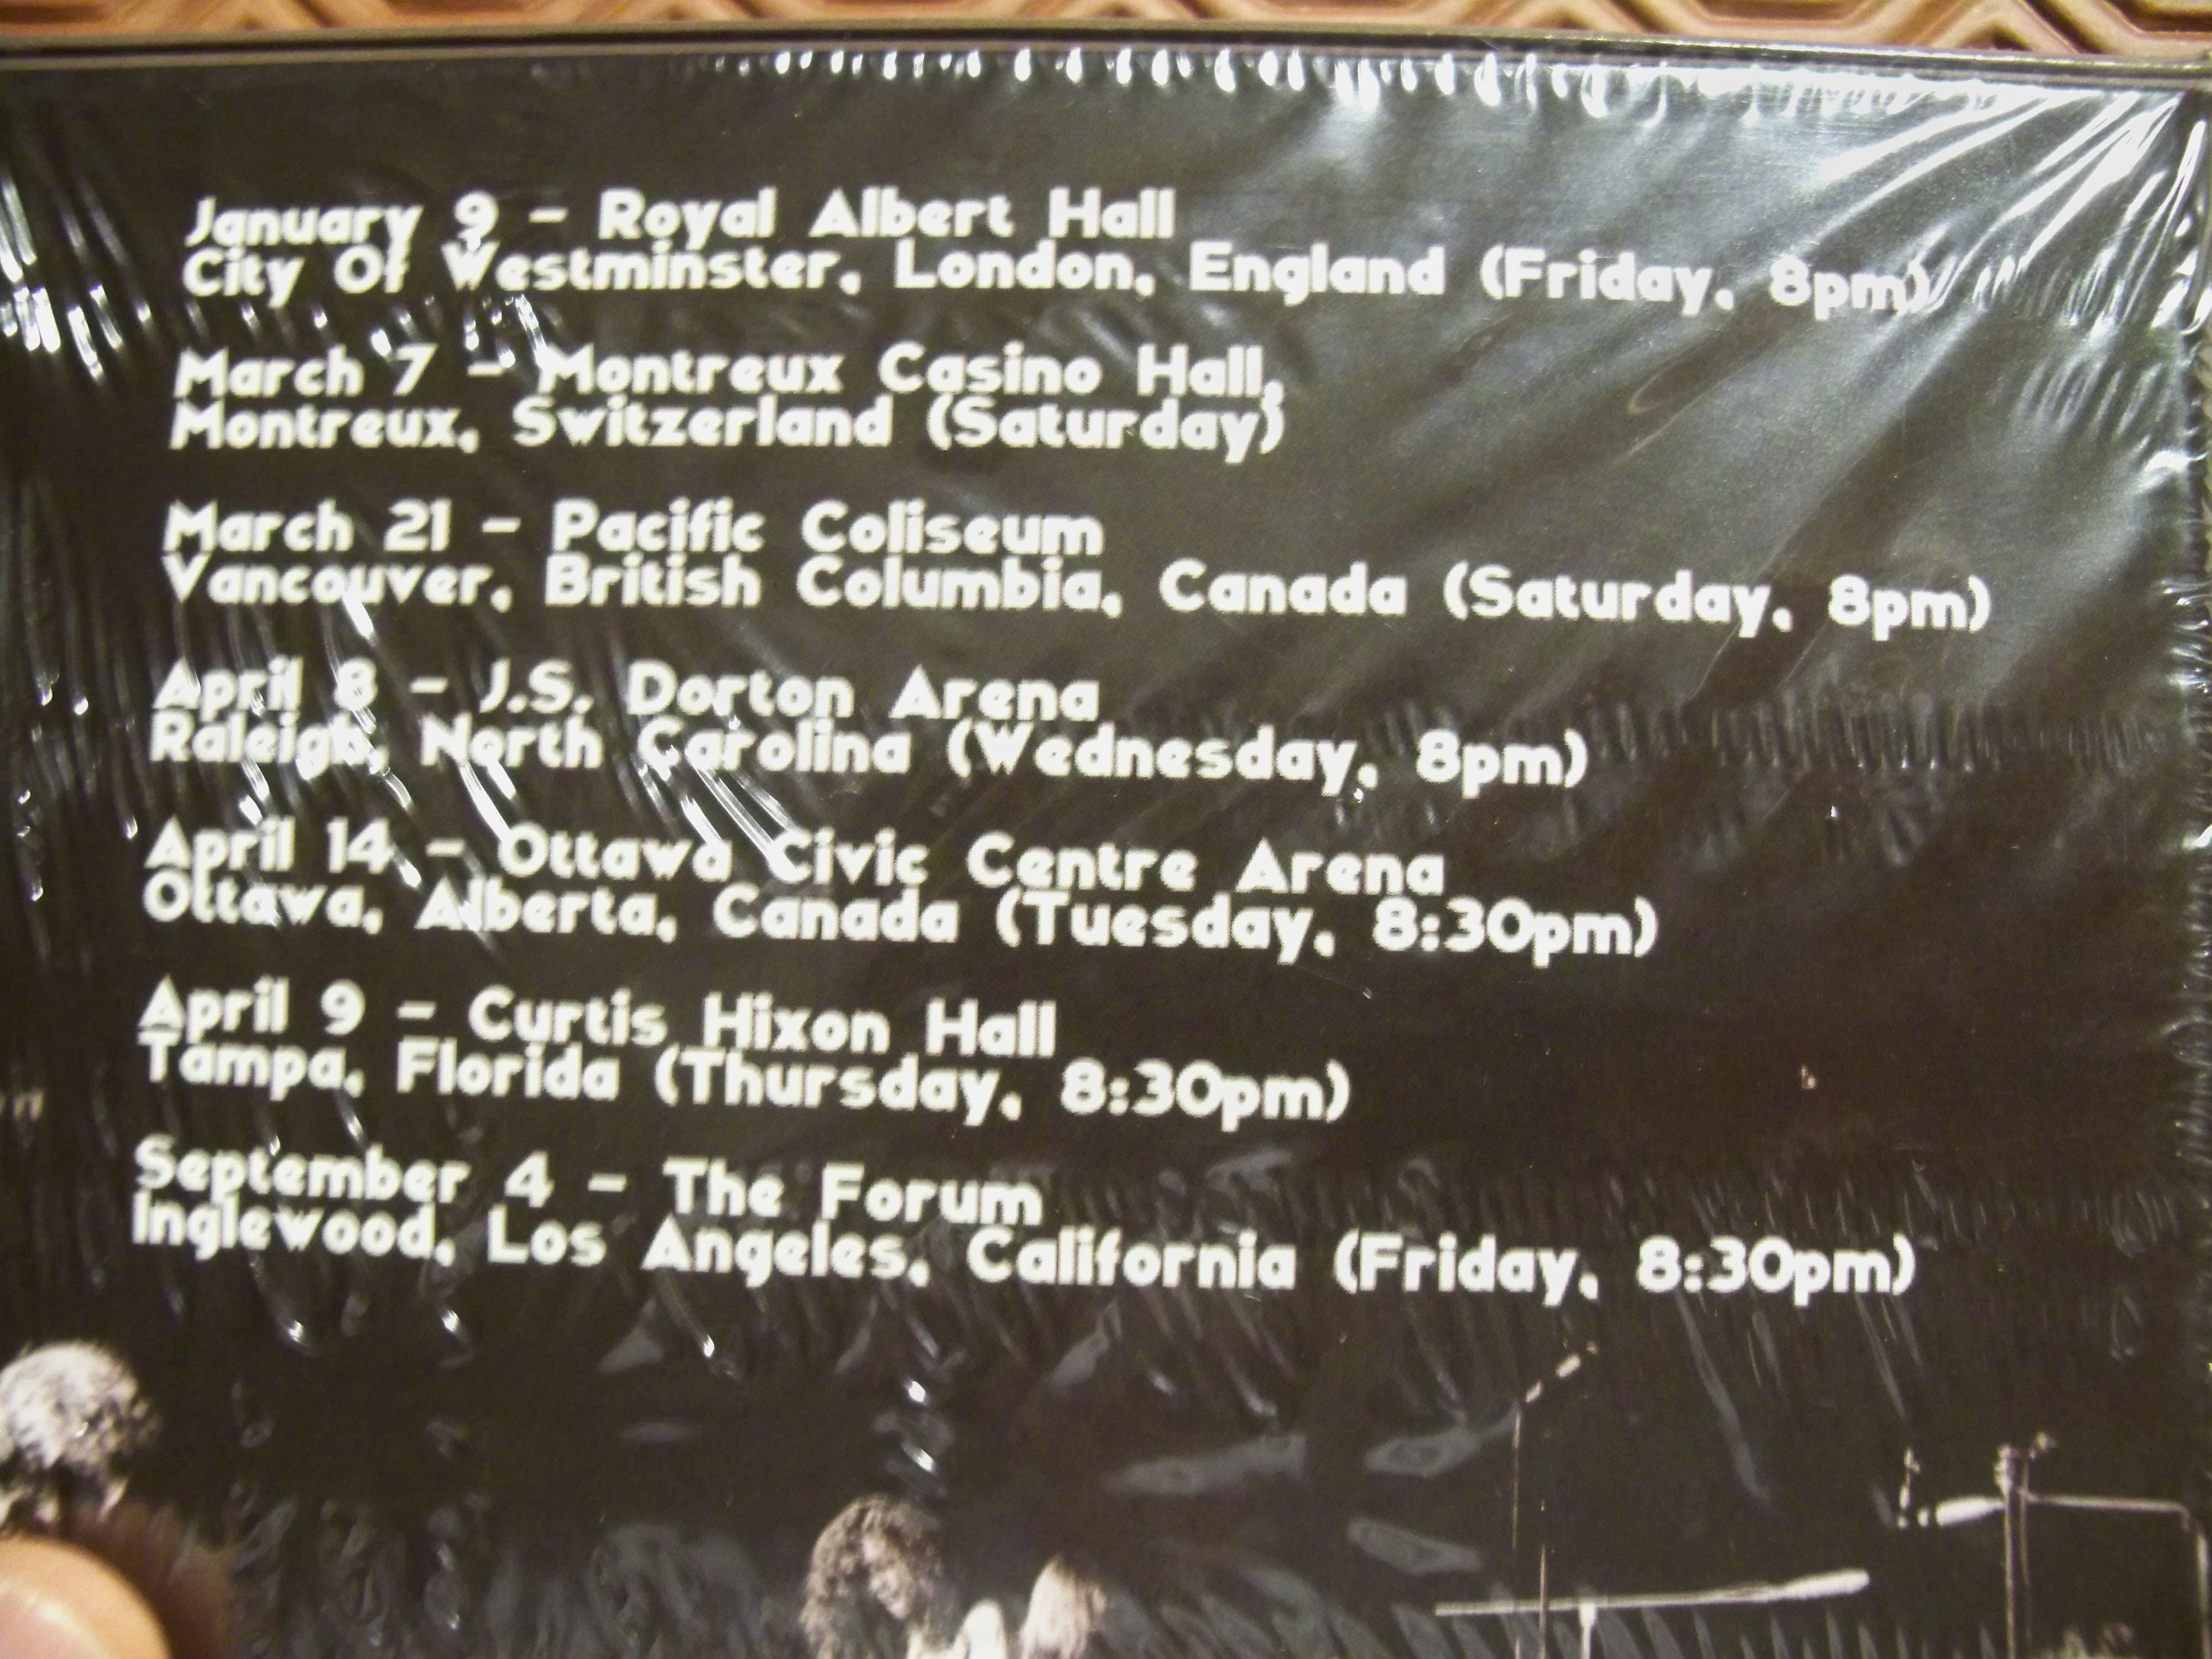 January 9 - Royal Albert Hall
City Of Westminster, London, England (Friday, 8pm)
March 7 - Montreux Casino Hall,
Montreux, Switzerland (Saturday)
March 21 - Pacific Coliseum
Vancouver, British Columbia, Canada (Saturday, 8pm)
April 8 - J.S. Dorton Arena
Raleigh, North Carolina (Wednesday, 8pm)
April 14 - Ottawa Civic Centre Arena
Ottawa, Alberta, Canada (Tuesday, 8:30pm)
April 9 - Curtis Hixon Hall
Tampa, Florida (Thursday, 8:30pm)
September 4 - The Forum
Inglewood, Los Angeles, California (Friday, 8:30pm)